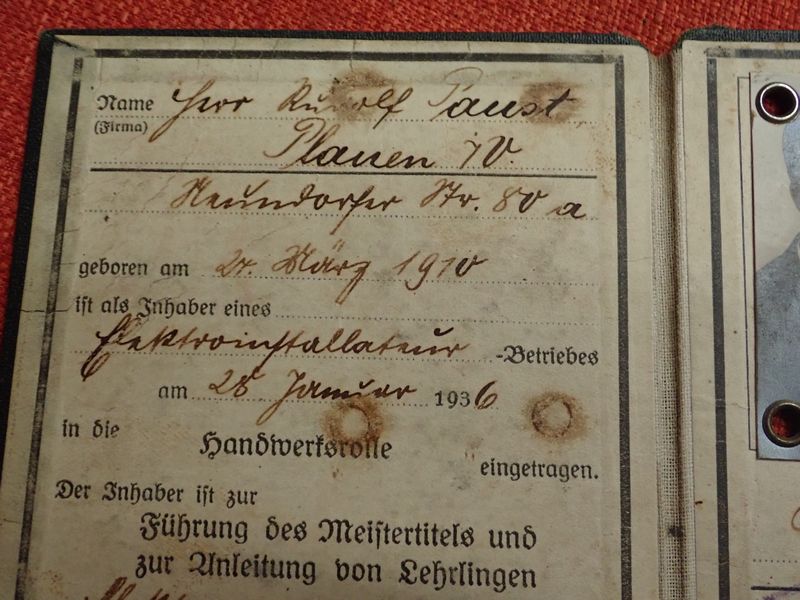 Name Herr Rudolf Paust
(Firma)
Plauen i/V.
Neundorfer Str. 80 a
geboren am März 1910
ist als Inhaber eines
Elektroinstallateur -Betriebes
am 28. Januar 1936
in die
Handwerksrolle
eingetragen.
Der Inhaber ist zur
Führung des Meistertitels und
zur Anleitung von Lehrlingen